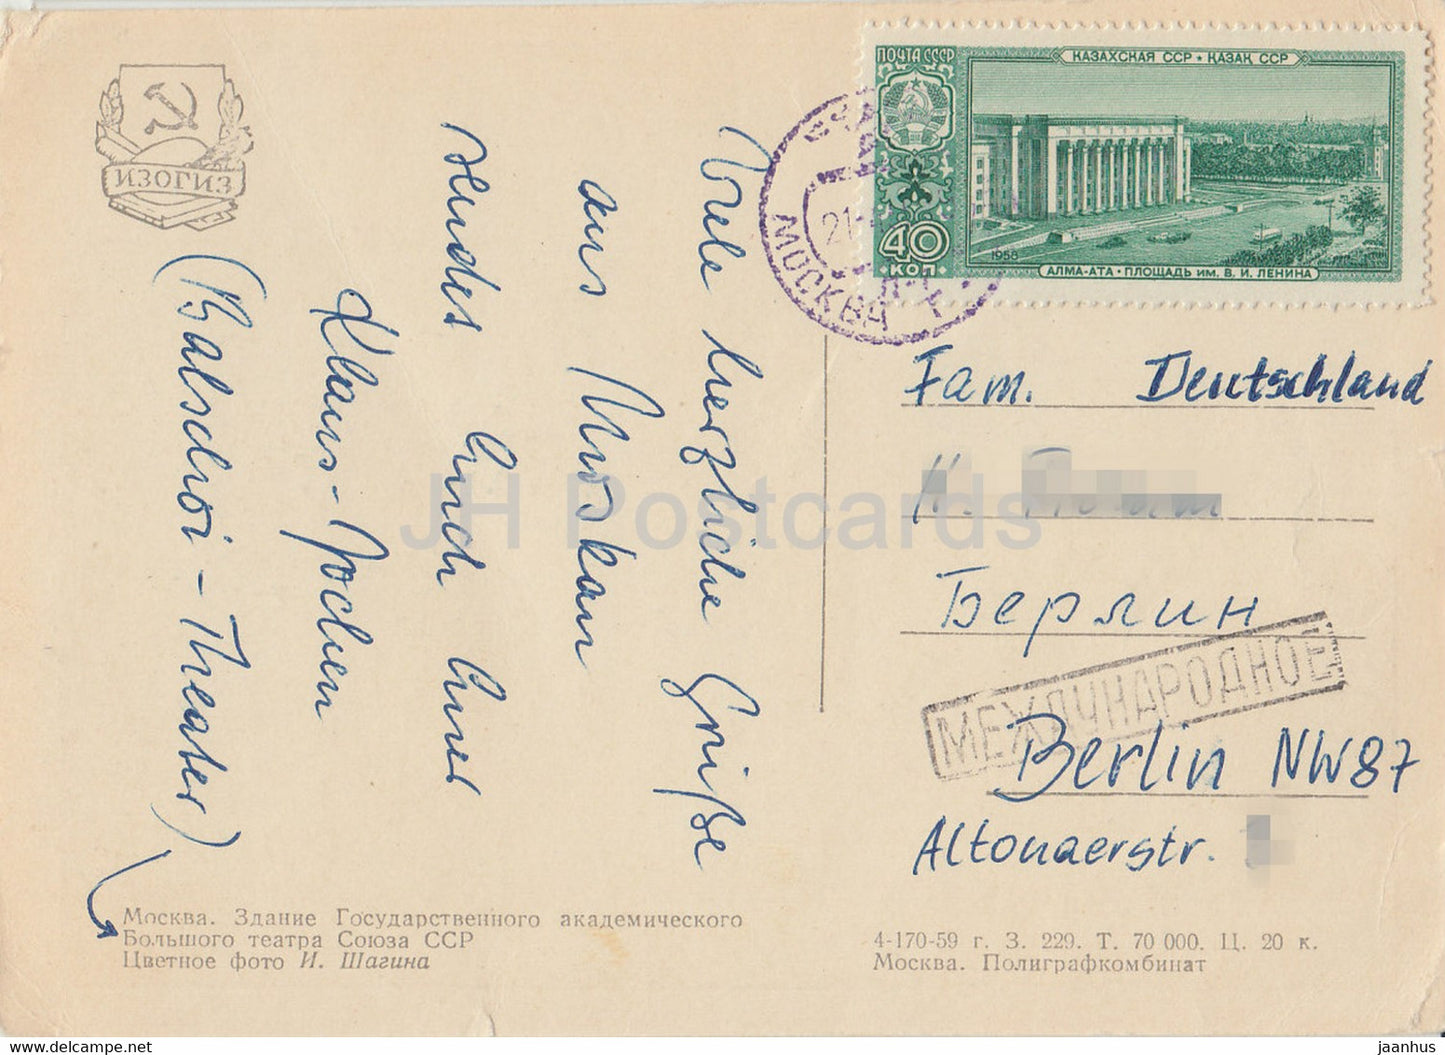 ИЗОГИЗ
Viele herzliche Grüße
aus Moskau
sendet Euch Euer
Klaus-Jochen
(Balschoi-Theater)
Москва. Здание Государственного академического
Большого театра Союза ССР
Цветное фото И. Шагина
ПОЧТА СССР
КАЗАХСКАЯ ССР • ҚАЗАҚ ССР
40
КОП.
1958
АЛМА-АТА • ПЛОЩАДЬ ИМ. В. И. ЛЕНИНА
21
МОСКВА
Fam. Deutschland
Берлин
МЕЖДУНАРОДНОЕ
Berlin NW87
Altonaerstr.
4-170-59 г. З. 229. Т. 70 000. Ц. 20 к.
Москва. Полиграфкомбинат
JH Postcards
www.jaanhus.com
jaanhus